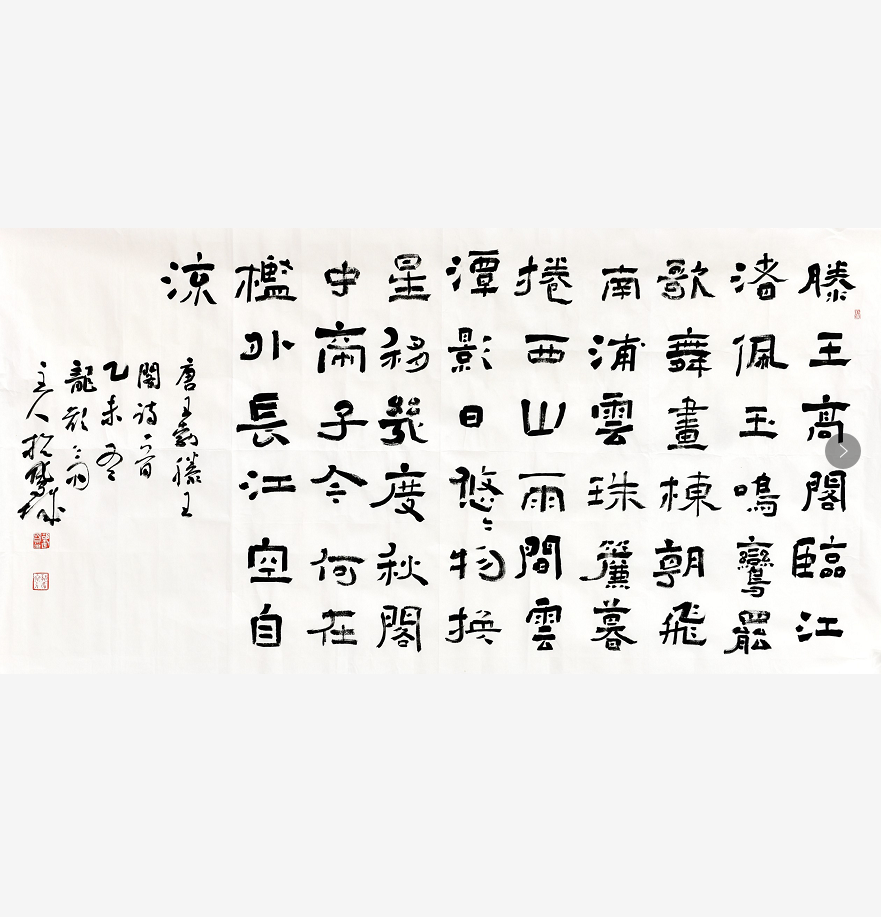 滕王高閣臨江
渚佩玉鳴鸞罷
歌舞畫棟朝飛
南浦雲珠簾暮
捲西山雨間雲
潭影日悠〻物換
星移幾度秋閣
中帝子今何在
檻外長江空自
流
唐王勃滕王
閣詩一首
乙未冬
龍
主人於